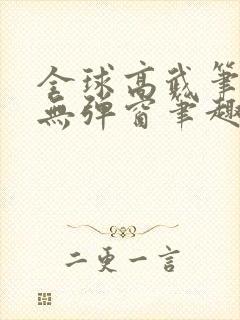 全球高武筆
無彈窗筆趣
二更一言